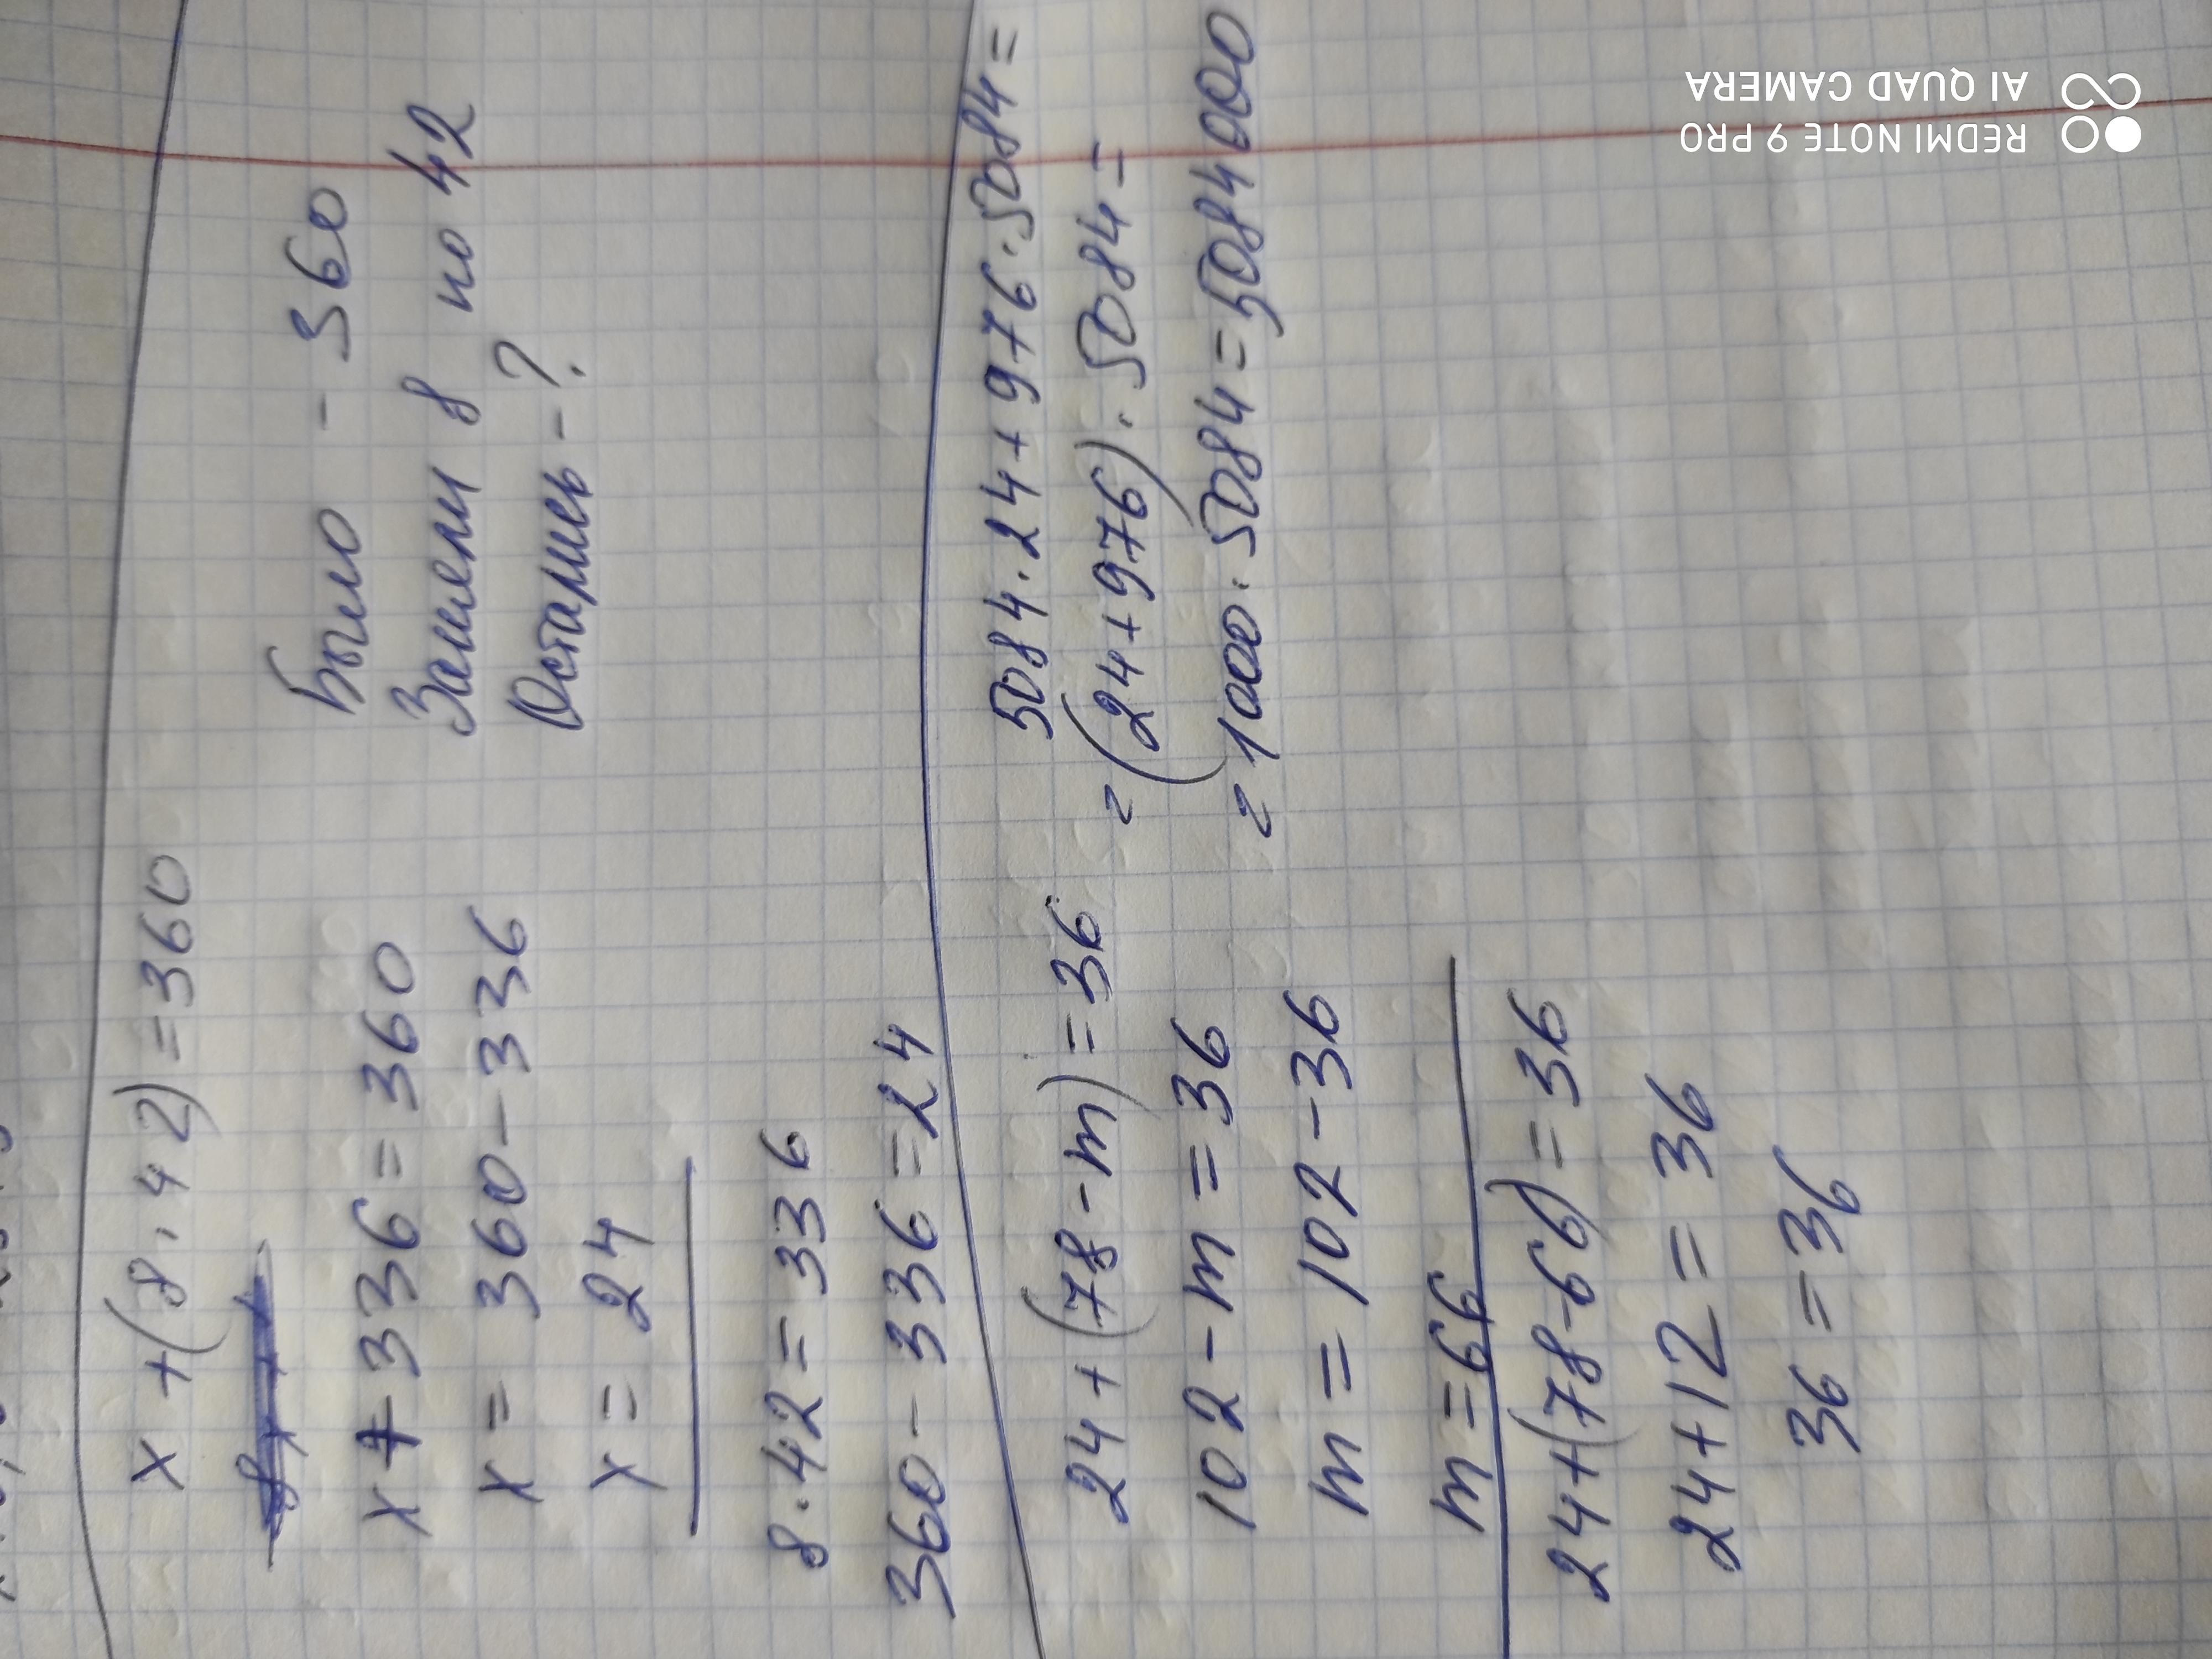 x + (8 · 42) = 360
x + 336 = 360
x = 360 - 336
x = 24
8 · 42 = 336
360 - 336 = 24
Было - 360
Заняли 8 по 42
Остались - ?
24 + (78 - m) = 36
102 - m = 36
m = 102 - 36
m = 66
24 + (78 - 66) = 36
24 + 12 = 36
36 = 36
5084 · 24 + 976 · 5084 =
= (24 + 976) · 5084 =
= 1000 · 5084 = 5084000
REDMI NOTE 9 PRO
AI QUAD CAMERA